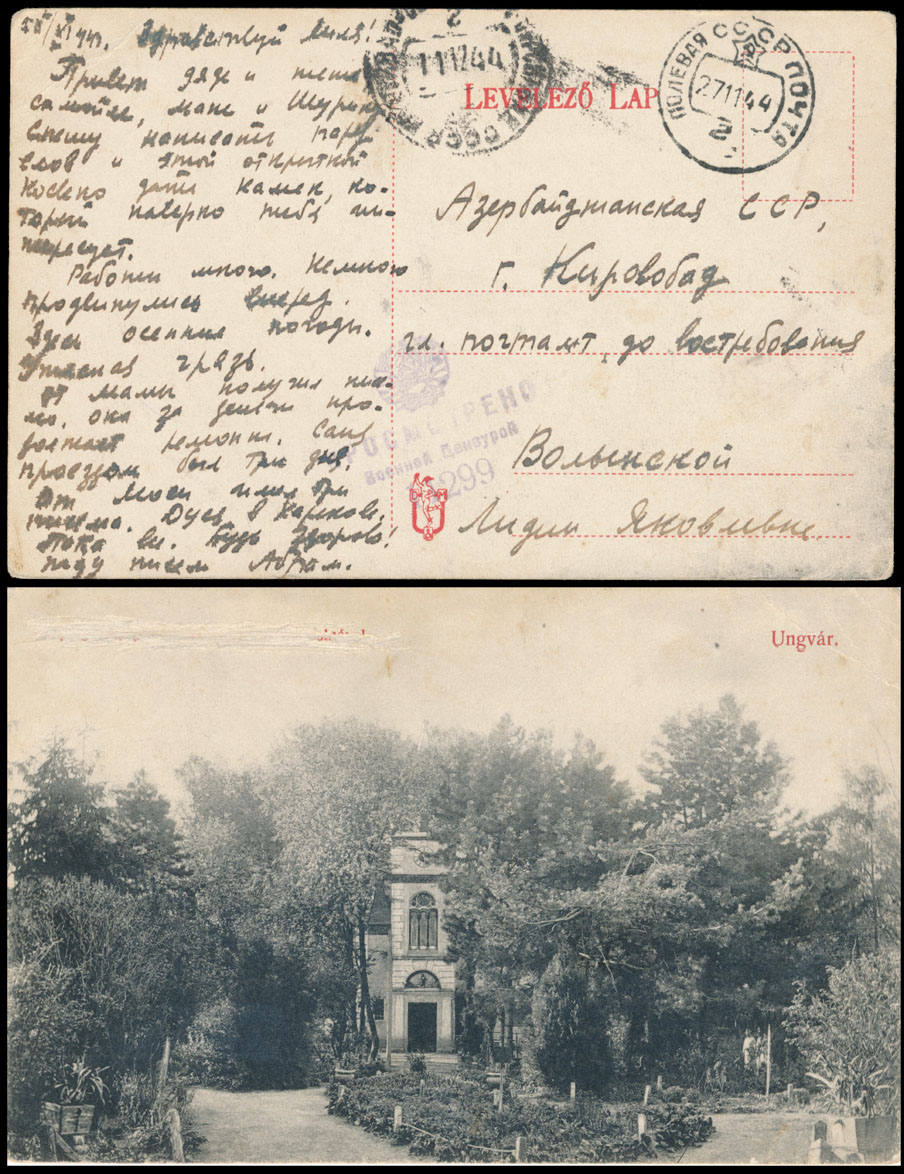 Здравствуй Миля!
Привет дяде и тете
самойле, маме и Шурику
Спешу написать пару
слов и этой открыткой
дать камен, ко-
торый наверно тебя ин-
тересует.
Работы много. Немного
продвинулись вперед.
Здесь осенние погоды.
Ужасная грязь.
От мамы получил пись-
мо, она за деньги про-
должает ремонт. Саня
проездом был три дня.
От Моси имел три
письма. Дуся в Харькове.
Пока все. Будь здорова!
Жду писем Абрам.
СССР
11 11 44
LEVELEZŐ LAP
ПОЛЕВАЯ ПОЧТА
СССР
27 11 44
Азербайджанская ССР,
г. Кировобад
гл. почтамт до востребования
Волынской
Лидии Яковлевне
ПРОСМОТРЕНО
Военной Цензурой
299
Ungvár.